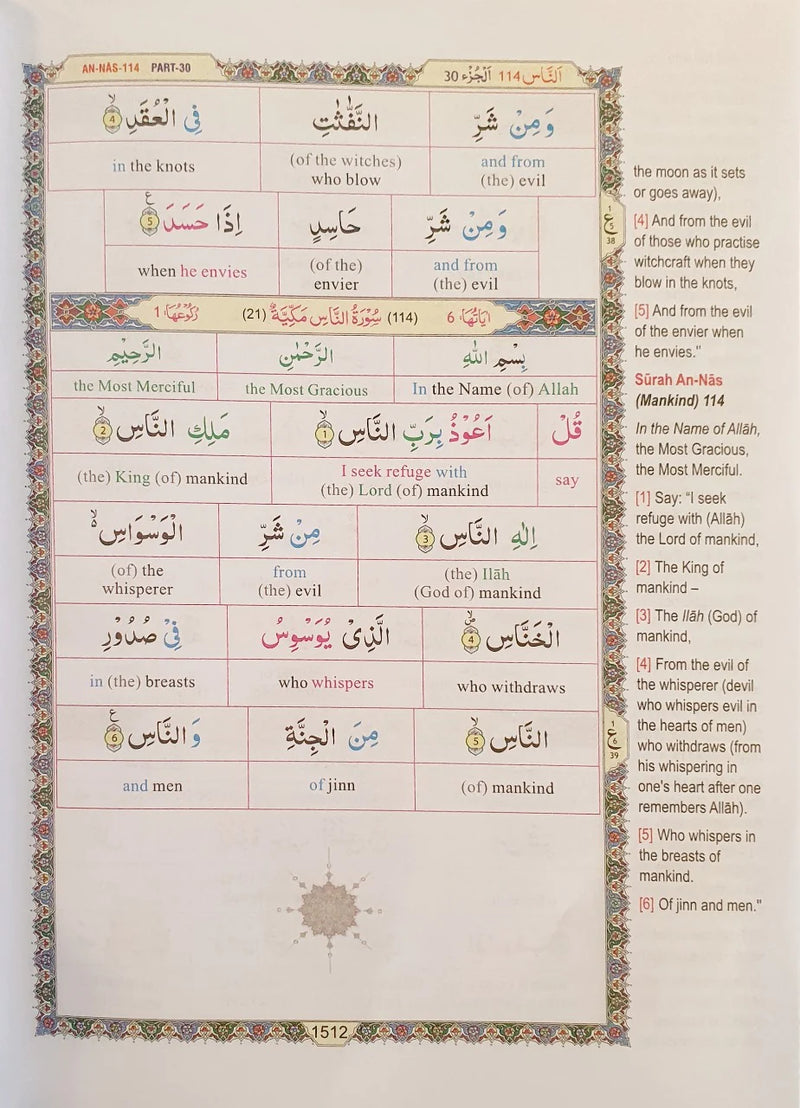 AN-NÂS-114 PART-30
اَلنَّاس 114 اَلْجُزْء 30
وَمِنْ شَرِّ النَّفّٰثٰتِ فِى الْعُقَدِ ۙ 4
and from (of the witches) in the knots
(the) evil who blow
وَمِنْ شَرِّ حَاسِدٍ اِذَا حَسَدَ ع 5
and from (of the) when he envies
(the) evil envier
اٰيَاتُهَا: 6 (114) سُوْرَةُ النَّاسِ مَكِّيَّةٌ (21) رُكُوْعُهَا: 1
بِسْمِ اللّٰهِ الرَّحْمٰنِ الرَّحِيْمِ
In the Name (of) Allah the Most Gracious the Most Merciful
قُلْ اَعُوْذُ بِرَبِّ النَّاسِ ۙ 1 مَلِكِ النَّاسِ ۙ 2
say I seek refuge with (the) King (of) mankind
(the) Lord (of) mankind
اِلٰهِ النَّاسِ ۙ 3 مِنْ شَرِّ الْوَسْوَاسِ ۙ
(the) Ilāh from (of) the
(God of) mankind (the) evil whisperer
الْخَنَّاسِ 4 الَّذِىْ يُوَسْوِسُ فِىْ صُدُوْرِ
who withdraws who whispers in (the) breasts
النَّاسِ ۙ 5 مِنَ الْجِنَّةِ وَالنَّاسِ ع 6
(of) mankind of jinn and men
1
ع
5
38
1
ع
6
39
the moon as it sets
or goes away),
[4] And from the evil
of those who practise
witchcraft when they
blow in the knots,
[5] And from the evil
of the envier when
he envies."
Sūrah An-Nās
(Mankind) 114
In the Name of Allāh,
the Most Gracious,
the Most Merciful.
[1] Say: "I seek
refuge with (Allāh)
the Lord of mankind,
[2] The King of
mankind –
[3] The Ilāh (God) of
mankind,
[4] From the evil of
the whisperer (devil
who whispers evil in
the hearts of men)
who withdraws (from
his whispering in
one's heart after one
remembers Allāh).
[5] Who whispers in
the breasts of
mankind.
[6] Of jinn and men."
1512